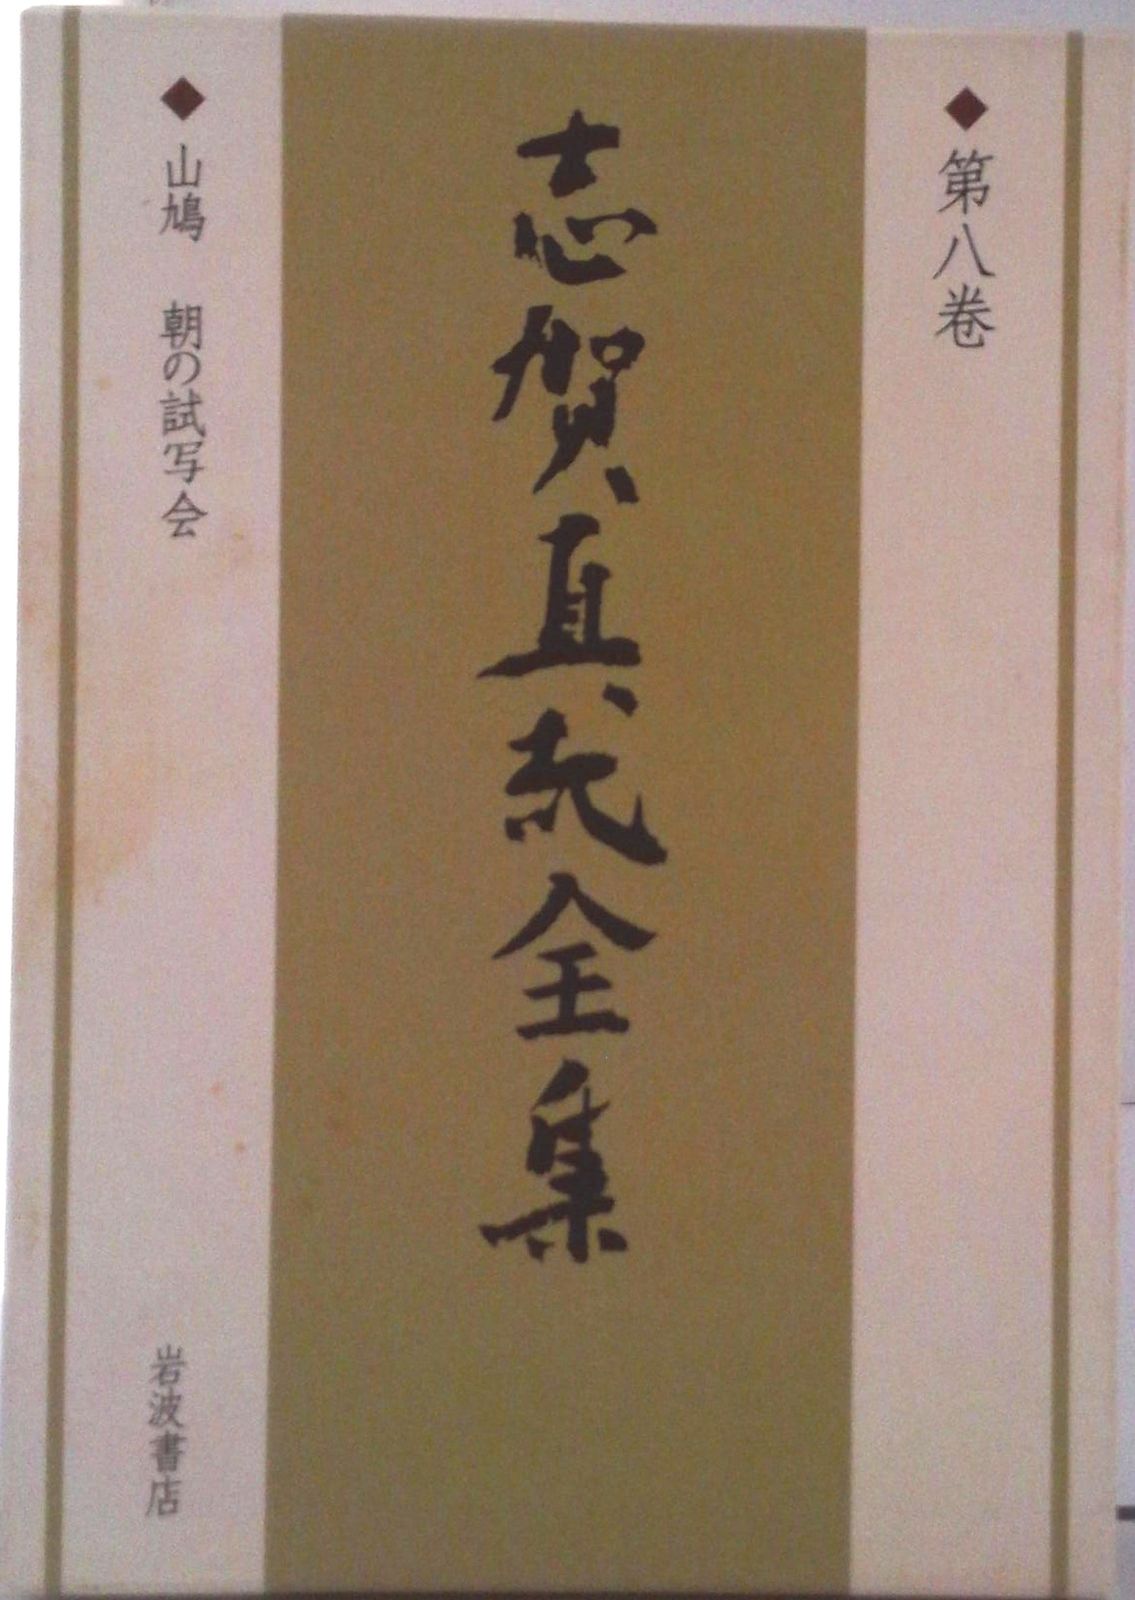 第八巻
志賀直哉全集
山鳩 朝の試写会
岩波書店